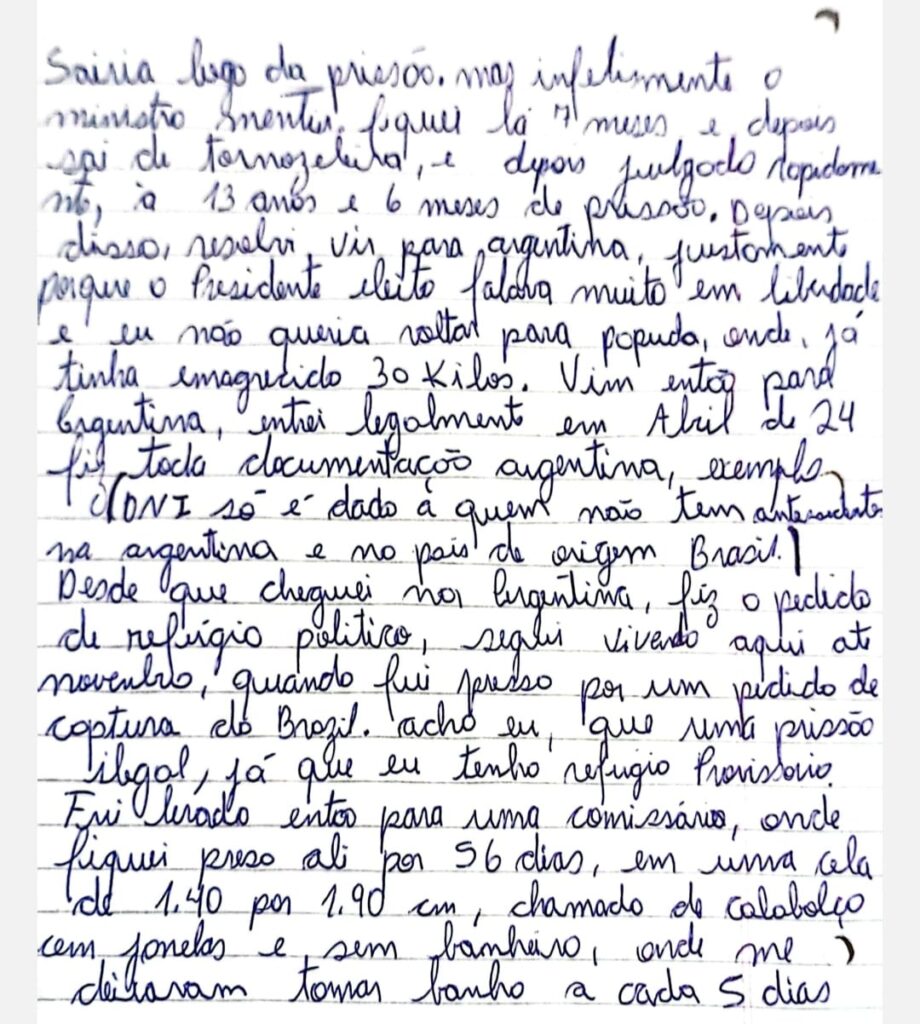 Sairia logo da priesão. mas infelismente o
ministro mentiu. fiquei lá 7 meses e depois
sai de tornozeleira, e depois julgado rapidame
nte, à 13 anos e 6 meses de prissão. Depois
disso, resolvi vir para argentina, justamente
porque o Presidente eleito falava muito em liberdade
e eu não queria voltar para popuda, onde, já
tinha emagrecido 30 Kilos. Vim então para
Argentina, entrei legalmente em Abril de 24
fiz toda documentação argentina, exemplo
O(DNI só é dado à quem não tem antecedente
na argentina e no país de origem Brasil.)
Desde que cheguei na Argentina, fiz o pedido
de refúgio politico, segui vivendo aqui até
novembro, quando fui presso por um pedido de
captura do Brazil. acho eu, que uma prissão
ilegal, já que eu tenho refugio Provissorio.
Fui levado então para uma comissária, onde
fiquei preso ali por 56 dias, em uma cela
de 1.40 por 1.90 cm, chamado de calabolço
cem janelas e sem banheiro, onde me
deixavam tomar banho a cada 5 dias